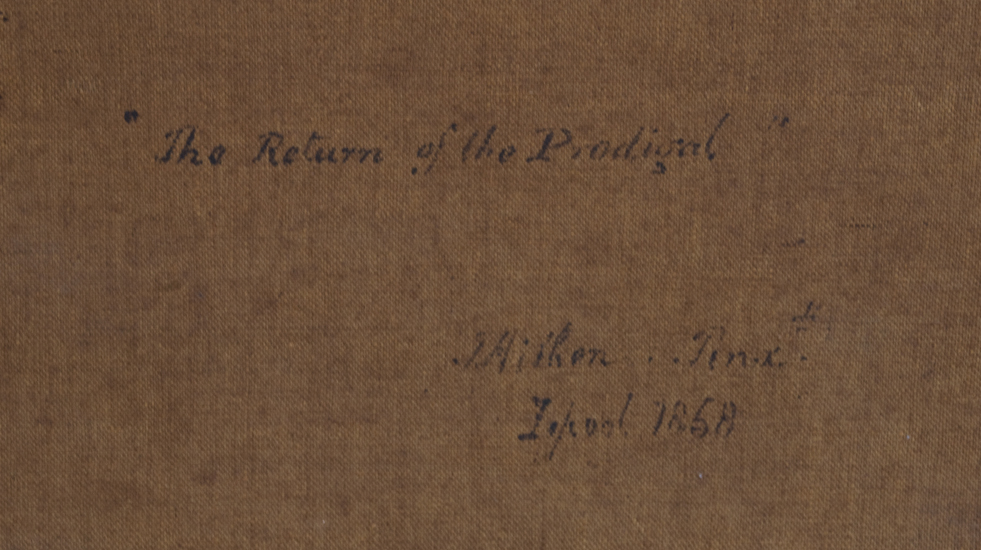 " The Return of the Prodigal "
Pinx.t
L'pool 1858